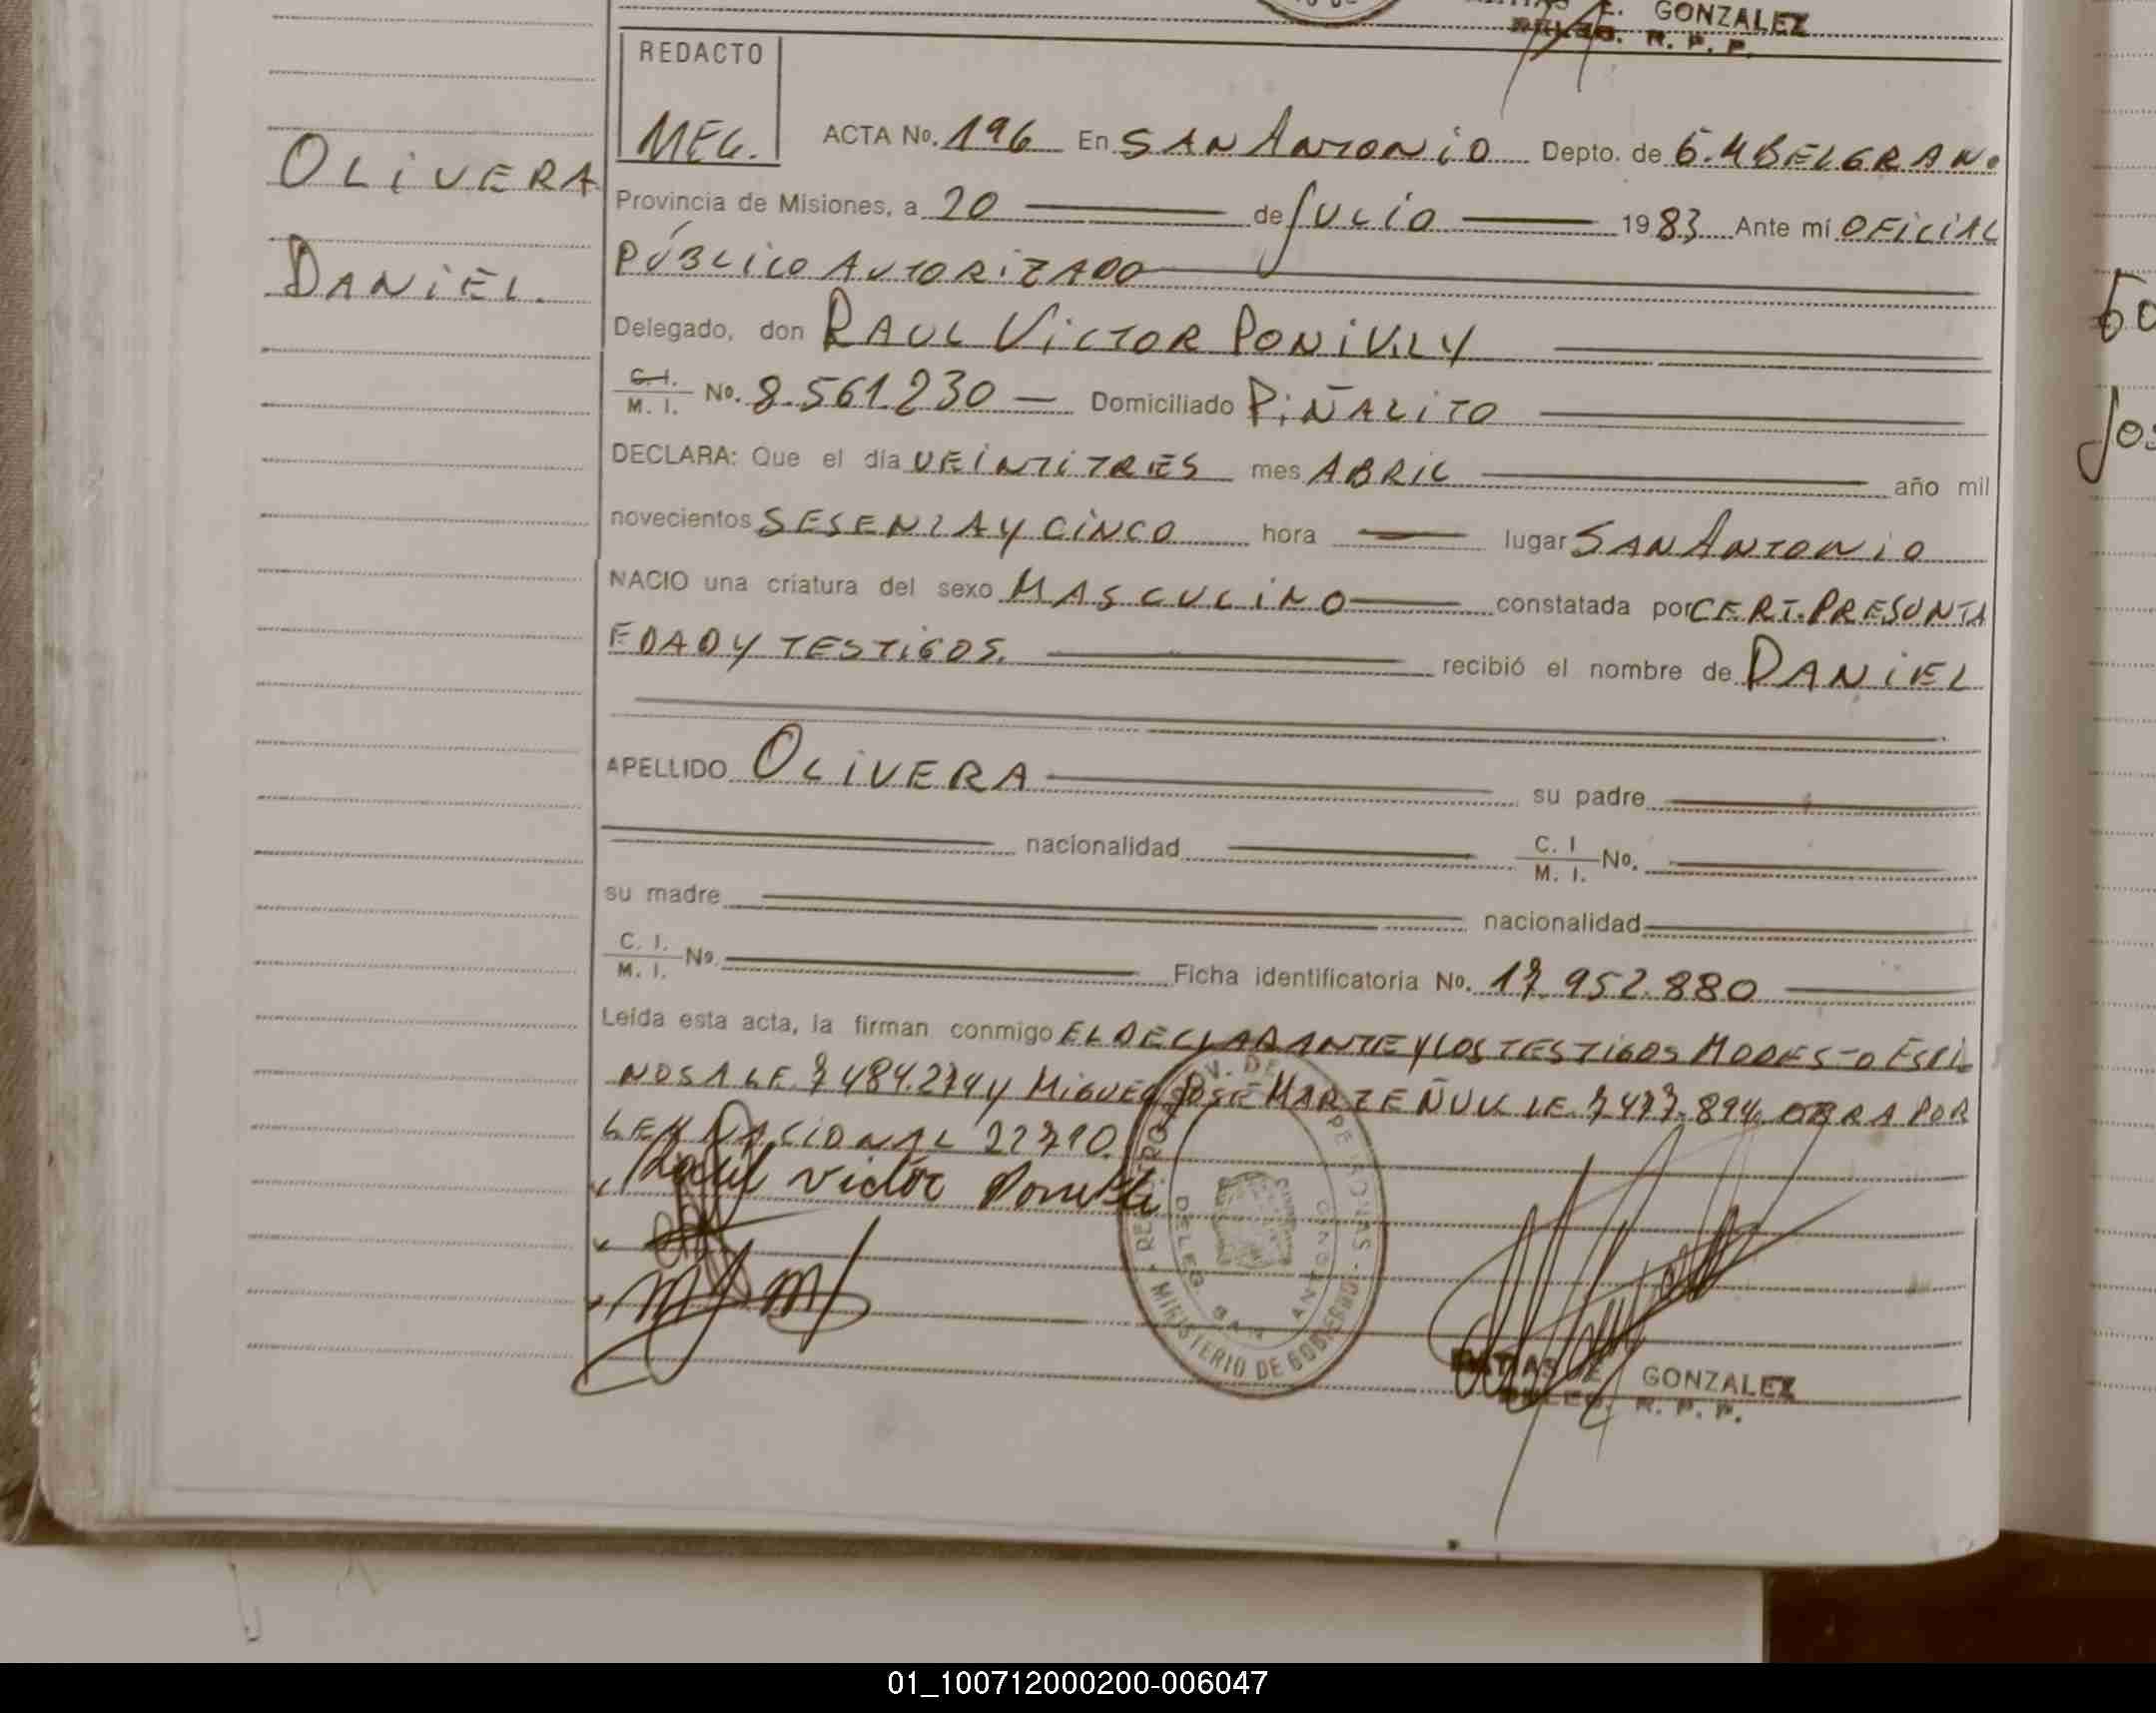 E. GONZALEZ
DELEG. R. P. P.
REDACTO
MEG.
OLIVERA
DANIEL.
ACTA No. 196 En SAN ANTONIO Depto. de G. M BELGRANO
Provincia de Misiones, a 20 de JULIO 1983 Ante mí OFICIAL
PÚBLICO AUTORIZADO
Delegado, don RAUL VICTOR PONIVILY
C. I. M. I. No. 8.561.230 Domiciliado PIÑALITO
DECLARA: Que el día VEINTITRES mes ABRIL año mil
novecientos SESENTA Y CINCO hora lugar SAN ANTONIO
NACIO una criatura del sexo MASCULINO constatada por CERT. PRESUNTA
EDAD Y TESTIGOS. recibió el nombre de DANIEL
APELLIDO OLIVERA su padre
nacionalidad C. I M. I. No.
su madre nacionalidad
C. I. M. I. No. Ficha identificatoria No. 17.952.880
Leída esta acta, la firman conmigo EL DECLARANTE Y LOS TESTIGOS MODESTO ESPI
NOSA LE. 7484.274 Y MIGUEL JOSÉ MARZEÑUK LE. 7477.894. OBRA POR
LEY NACIONAL 22710.
Raul Victor
MINISTERIO DE GOBIERNO
DELEG. SAN ANTONIO
MATIAS E. GONZALEZ
DELEG. R. P. P.
01_100712000200-006047